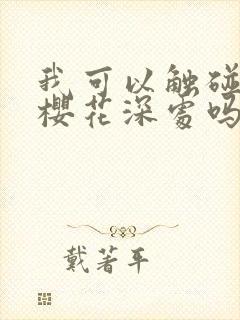 我可以触碰
樱花深处吗
戴著平